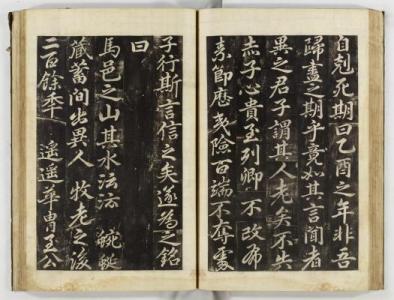 自剋死期曰乙酉之年非吾
歸盡之期乎竟如其言聞者
異之君子謂其人老矣不失
赤子心貴至列卿不改布
素節歷夷險百端不奪處
子行斯言信之矣遂為之銘
曰
馬邑之山其水 蜿蜒
藏蓄間出異人牧老之後
二百餘秊遙遙華胄至公